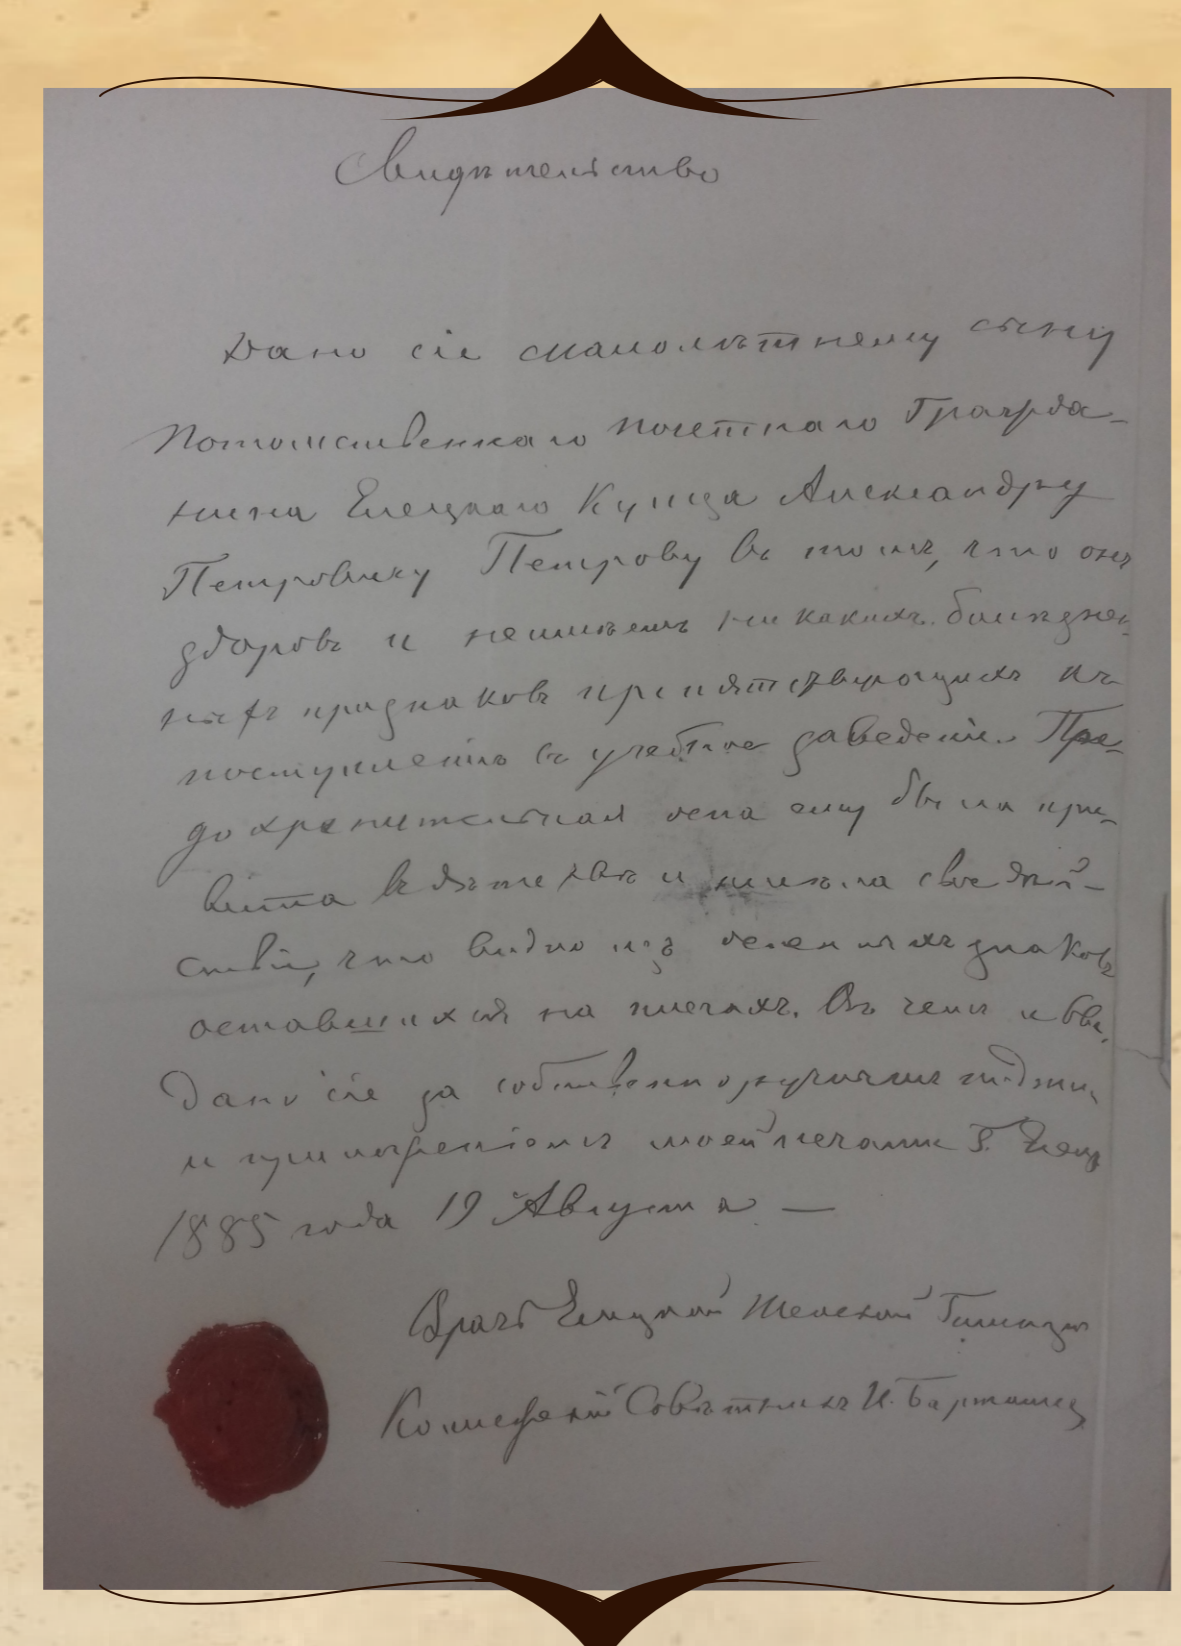 Свидѣтельство
Дано сіе малолѣтнему сыну
Потомственнаго почетнаго Гражда-
нина Елецкаго Купца Александру
Петровичу Петрову въ томъ, что онъ
здоровъ и неимѣетъ никакихъ болѣзнен-
ныхъ признаковъ препятствующихъ къ
поступленію въ учебное заведеніе. Пре-
дохранительная оспа ему была при-
вита въ дѣтствѣ и имѣла свое дѣй-
ствіе, что видно изъ оспенныхъ знаковъ
оставшихся на плечахъ. Въ чемъ и
Дано сіе за собственноручнымъ подпис.
и приложеніемъ моей печати Г. Елец
1885 года 19 Августа —
Врачъ Елецкой Женской Гимназіи
Коллежскій Совѣтникъ И.